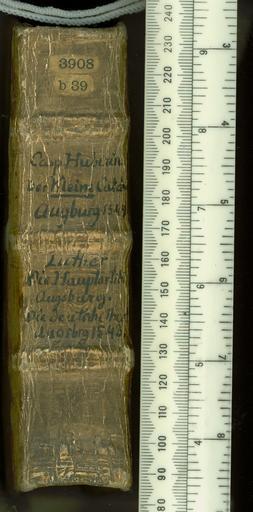 3908
b 39
Casp. Huberin
Der Kleine Cate
Augburg 1543
Luther
Die Hauptartik
Augsburg.
Die deutsche
Augsburg 1543
240
230
220
210
200
190
180
170
160
150
140
130
120
110
100
90
80
3
4
5
6
7
8
9
8
7
6
5
4